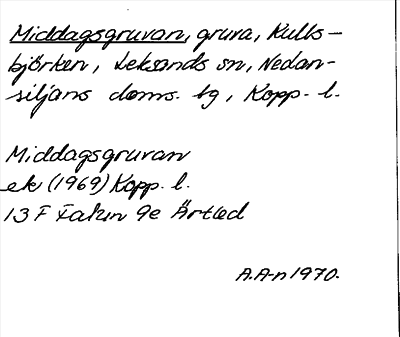 Middagsgruvan, gruva, Kulls-
björken, Leksands sn, Nedan-
siljans doms. tg, Kopp. l.
Middagsgruvan
ek (1969) Kopp. l.
13 F Falun 9e Ärtled
A.A-n 1970.